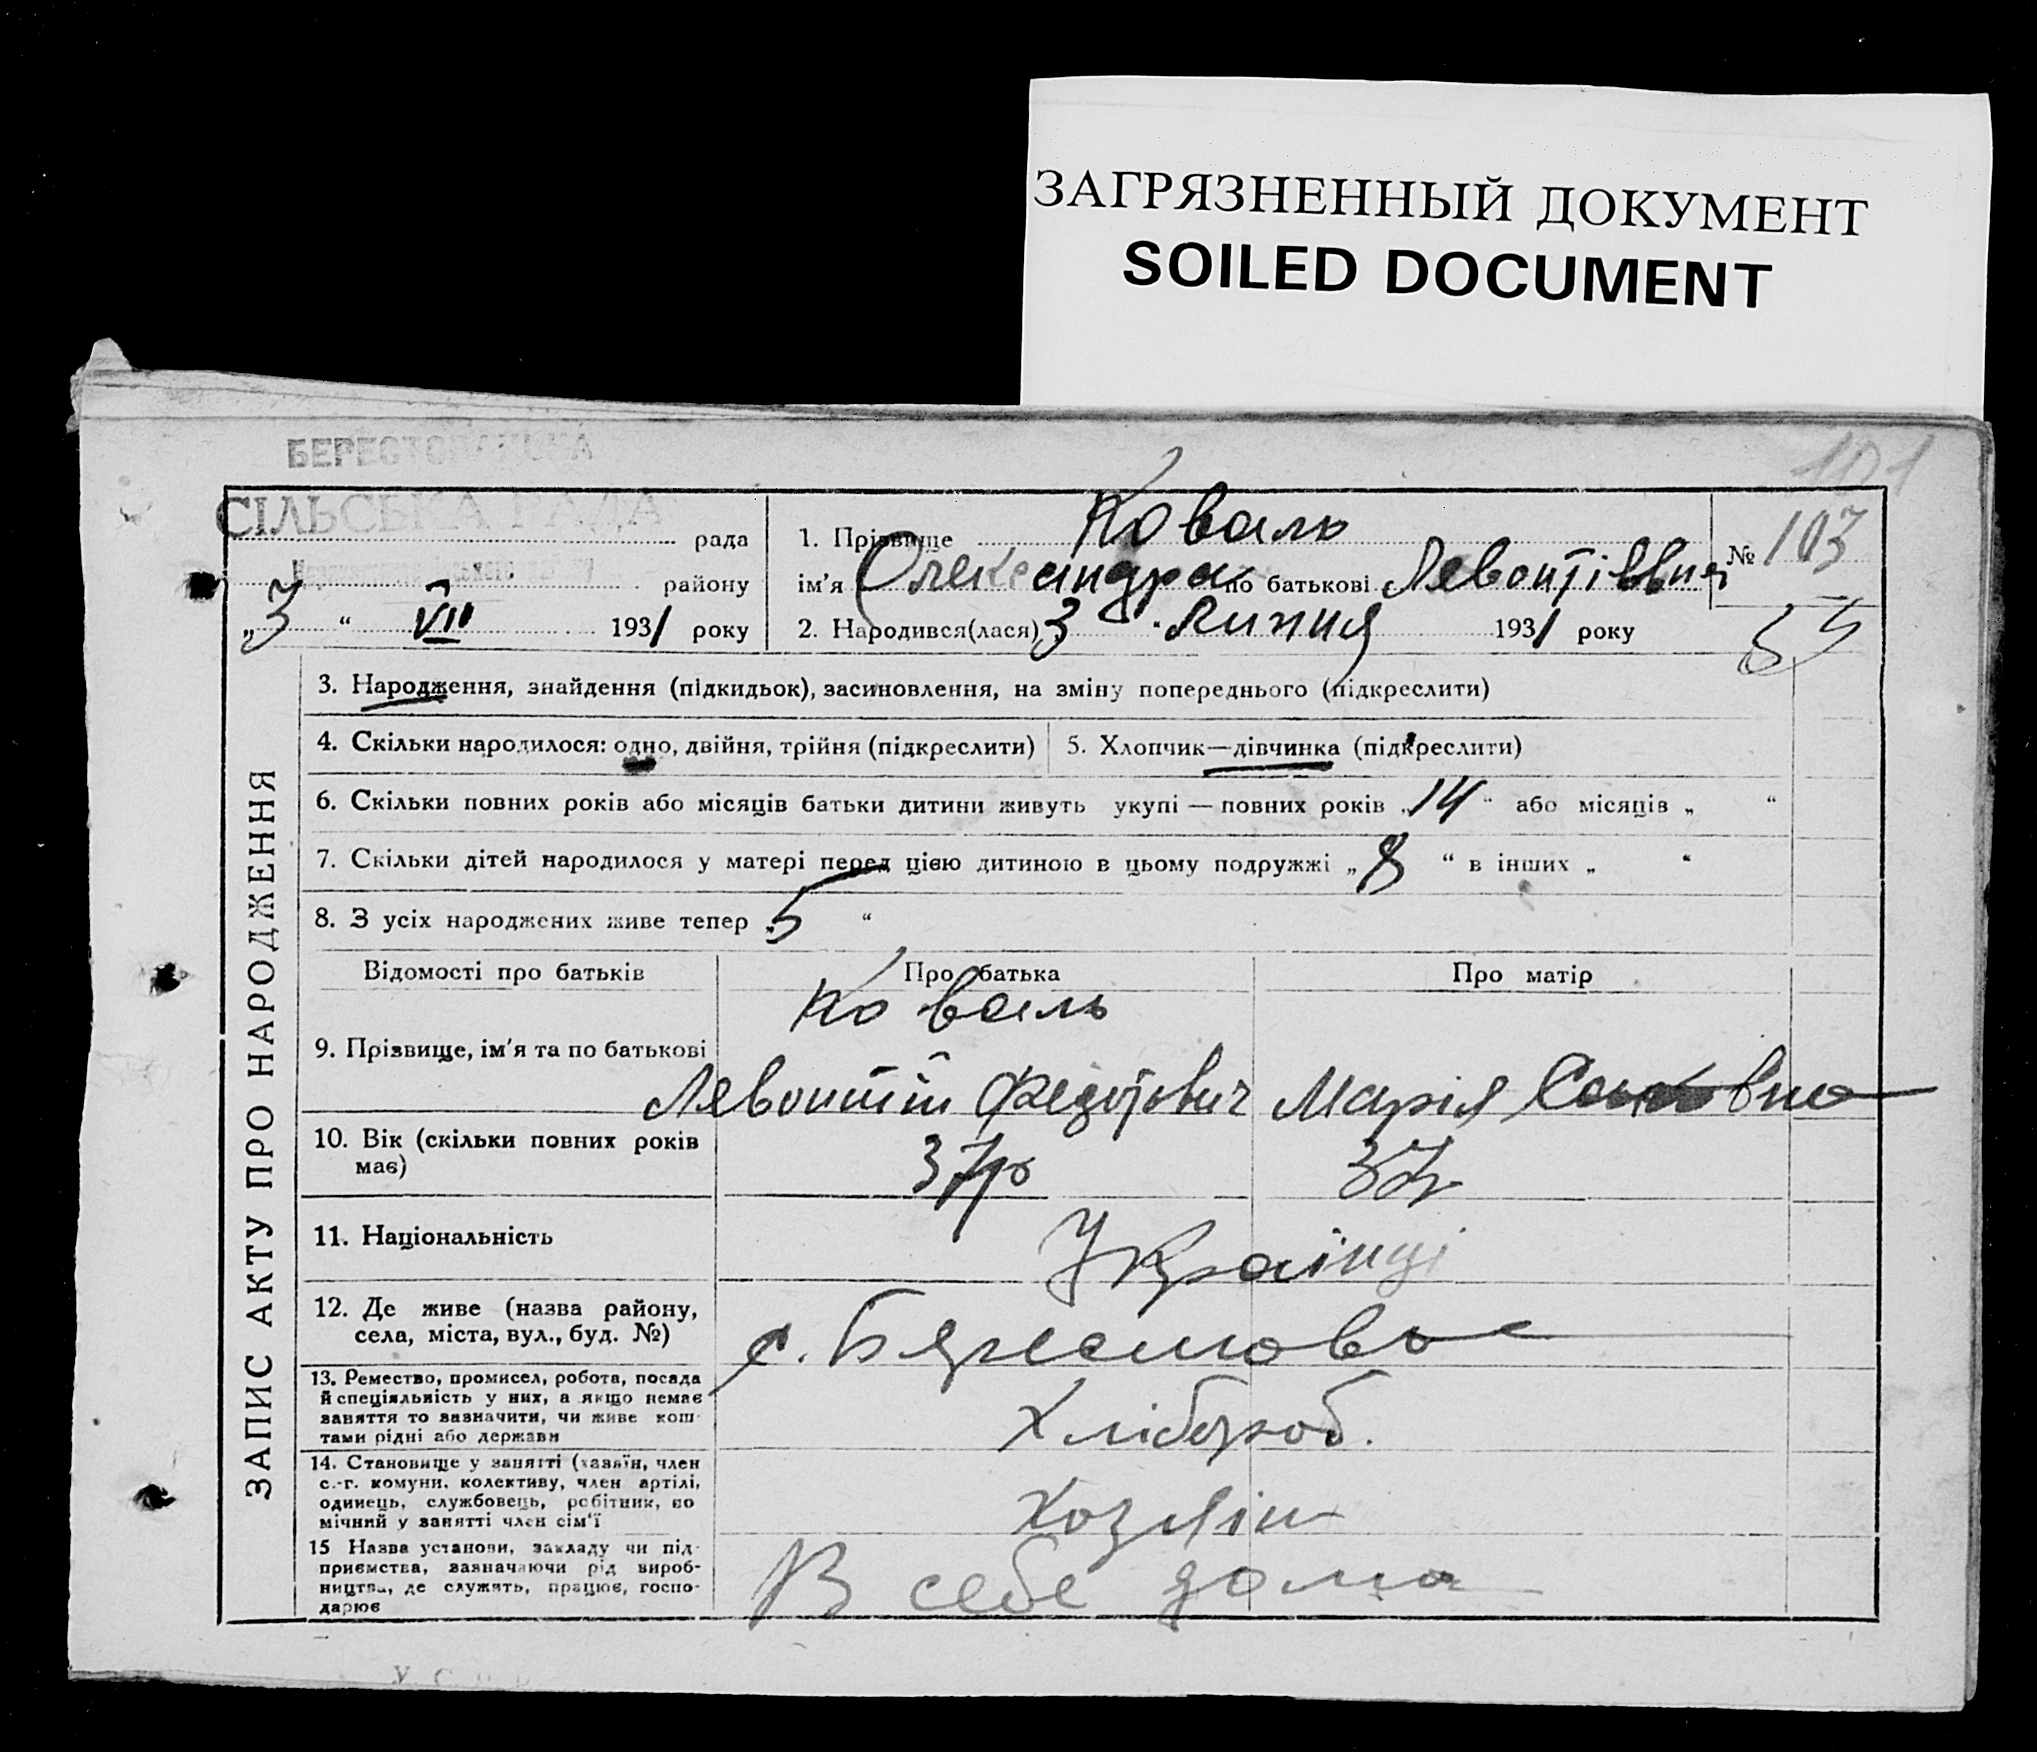 ЗАГРЯЗНЕННЫЙ ДОКУМЕНТ
SOILED DOCUMENT
101
СІЛЬСЬКА РАДА
рада
району
„3“ VII 1931 року
1. Прізвище Коваль
ім'я Олександра по батькові Левонтіввна
2. Народився(лася) 3 Липня 1931 року
№ 103
55
ЗАПИС АКТУ ПРО НАРОДЖЕННЯ
3. Народження, знайдення (підкидьок), засиновлення, на зміну попереднього (підкреслити)
4. Скільки народилося: одно, двійня, трійня (підкреслити)
5. Хлопчик—дівчинка (підкреслити)
6. Скільки повних років або місяців батьки дитини живуть укупі — повних років „14“ або місяців „ “
7. Скільки дітей народилося у матері перед цією дитиною в цьому подружжі „8“ в інших „ “
8. З усіх народжених живе тепер „5“
Відомості про батьків Про батька Про матір
9. Прізвище, ім'я та по батькові
Коваль
Левонтій Федотович Марія
10. Вік (скільки повних років
має)
37р 37
11. Національність
Українці
12. Де живе (назва району,
села, міста, вул., буд. №)
с. Берестове
13. Ремество, промисел, робота, посада
й спеціяльність у них, а якщо немає
заняття то зазначити, чи живе кош-
тами рідні або держави
Хлібороб.
14. Становище у занятті (хазяїн, член
с.-г. комуни, колективу, член артілі,
одинець, службовець, робітник, по
мічний у занятті член сім'ї
Хозяін
15 Назва установи, закладу чи під-
приємства, зазначаючи рід вироб-
ництва, де служить, працює, госпо-
дарює
В себе дома